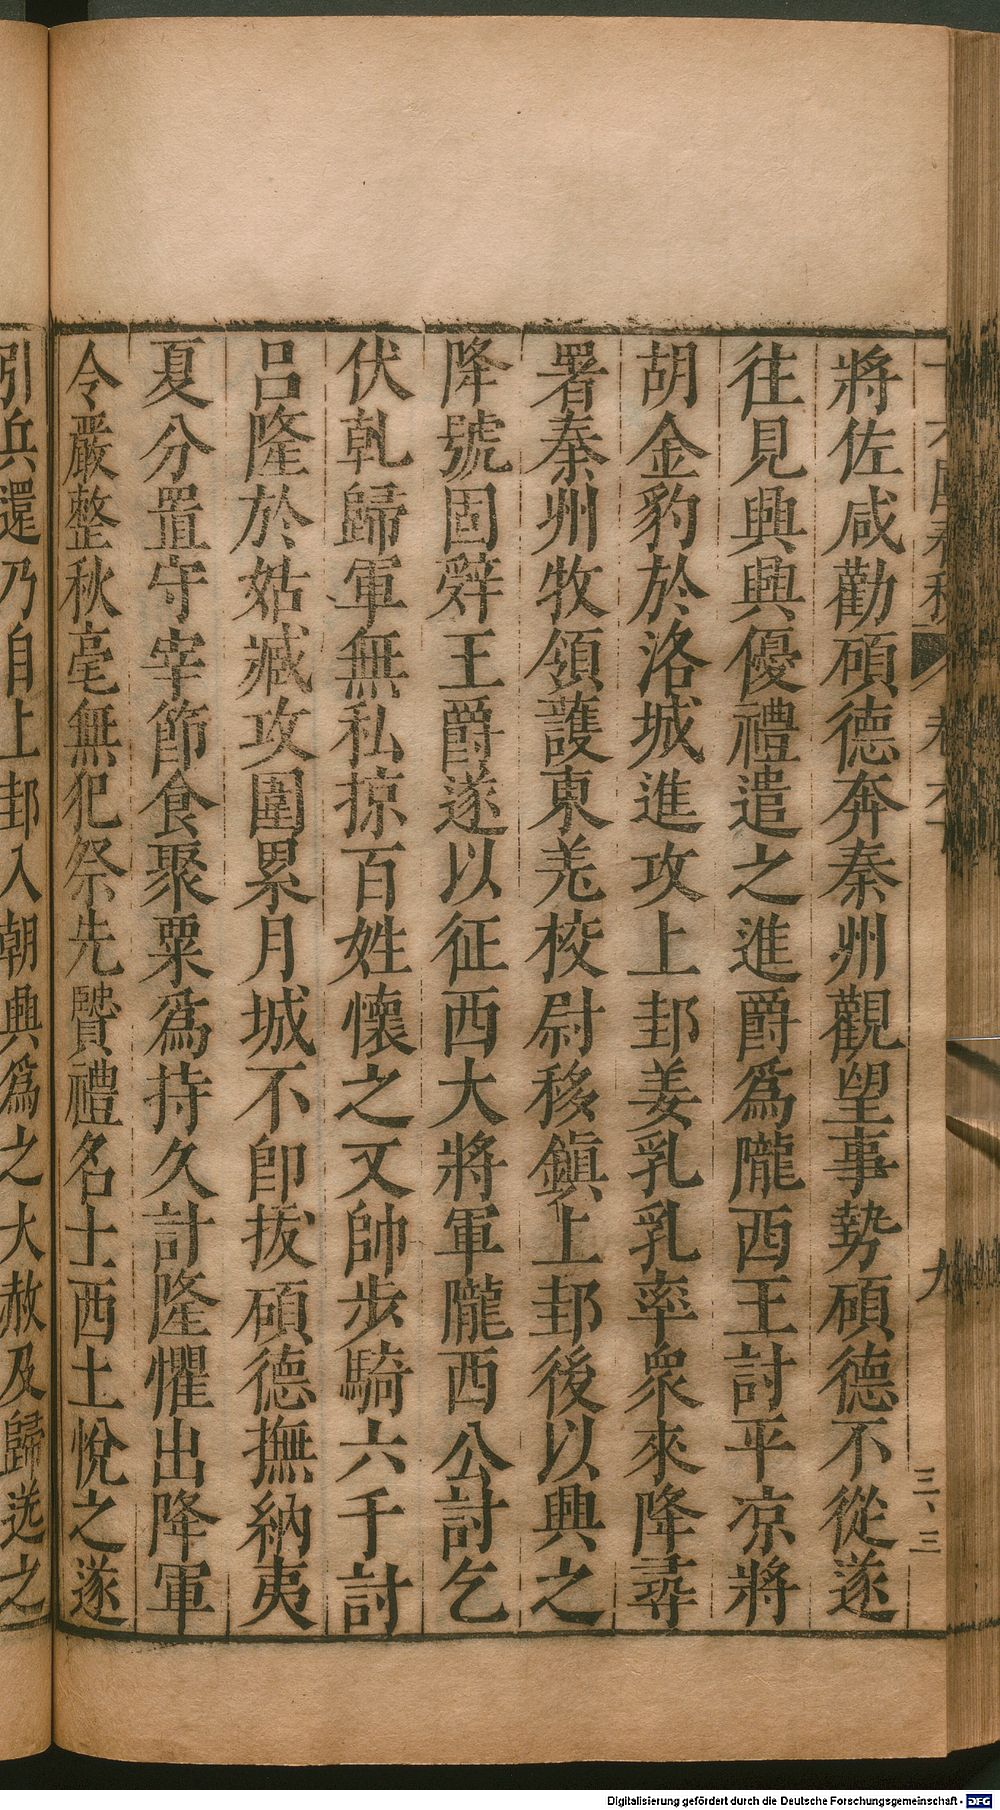 將佐咸勸碩德奔秦州觀望事勢碩德不從遂
往見興興優禮遣之進爵爲隴西王討平凉將
胡金豹於洛城進攻上邽姜乳乳率衆來降尋
署秦州牧領護東羌校尉移鎮上邽後以興之
降號固辤王爵遂以征西大將軍隴西公討乞
伏乹歸軍無私掠百姓懷之又帥步騎六千討
呂隆於姑臧攻圍累月城不即拔碩德撫納夷
夏分置守宰節食聚粟爲持久計隆懼出降軍
令嚴整秋毫無犯祭先賢禮名士西土悅之遂
引兵還乃自上邽入朝興爲之大赦及歸送之
九
三、三
Digitalisierung gefördert durch die Deutsche Forschungsgemeinschaft - DFG